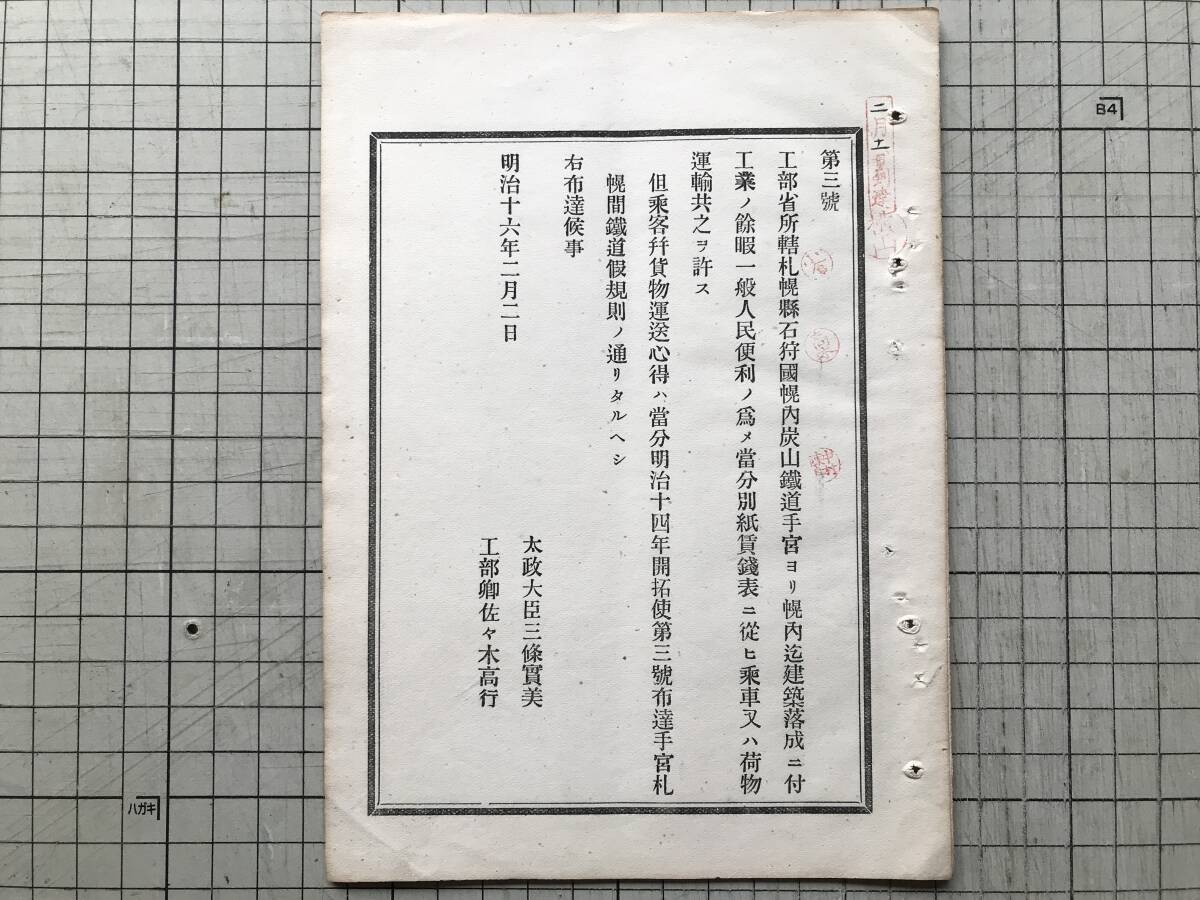 第三號
工部省所轄札幌縣石狩國幌內炭山鐵道手宮ヨリ幌內迄建築落成ニ付
工業ノ餘暇一般人民便利ノ爲メ當分別紙賃錢表ニ從ヒ乘車又ハ荷物
運輸共之ヲ許ス
但乘客幷貨物運送心得ハ當分明治十四年開拓使第三號布達手宮札
幌間鐵道假規則ノ通リタルヘシ
右布達候事
明治十六年二月二日
太政大臣三條實美
工部卿佐々木高行
二月十一日
B4
ハガキ